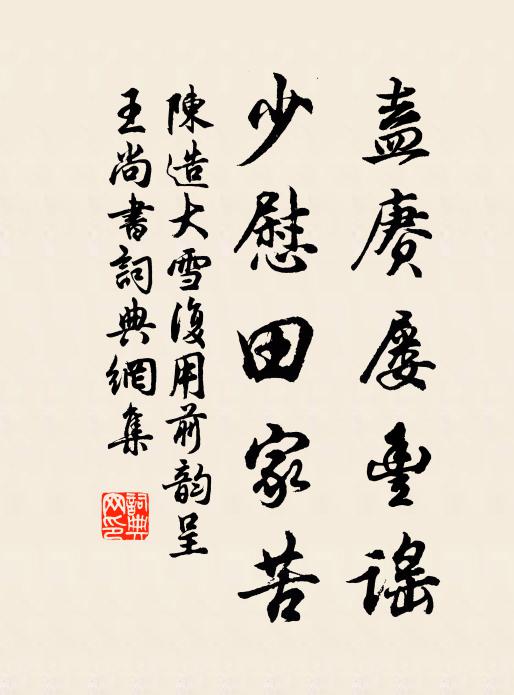 盍賡屡豊謡
少慰田家苦
陳造大雪復用前韵呈
王尚書詞典網集
詞典网印